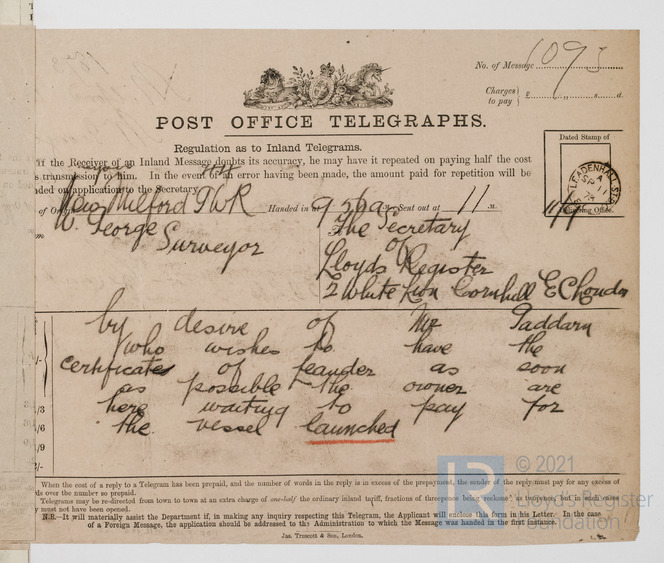 No. of Message 109
Charges to pay £ s. d.
POST OFFICE TELEGRAPHS.
Regulation as to Inland Telegrams.
If the Receiver of an Inland Message doubts its accuracy, he may have it repeated on paying half the cost
s transmission to him. In the event of an error having been made, the amount paid for repetition will be
ded on application to the Secretary.
Dated Stamp of
LEADENHALL ST
A
SP 11
74
Office.
New Milford GWR Handed in at 9 52 a M. Sent out at 11 M.
W. George
Surveyor
The Secretary
of
Lloyds Register
2 White Lion Cornhill EC London
by desire of Mr Gaddarn
who wishes to have the
certificates of Leander as soon
as possible the owner are
here waiting to pay for
the vessel launched
/3
/6
/9
When the cost of a reply to a Telegram has been prepaid, and the number of words in the reply is in excess of the prepayment, the sender of the reply must pay for any excess of
ds over the number so prepaid.
Telegrams may be re-directed from town to town at an extra charge of one-half the ordinary inland tariff, fractions of threepence being reckoned as threepence, but in such cases
y must not have been opened.
N.B.—It will materially assist the Department if, in making any inquiry respecting this Telegram, the Applicant will enclose this form in his Letter. In the case
of a Foreign Message, the application should be addressed to the Administration to which the Message was handed in the first instance.
Jas. Truscott & Son, London.
LR
© 2021
Lloyd's Register
Foundation